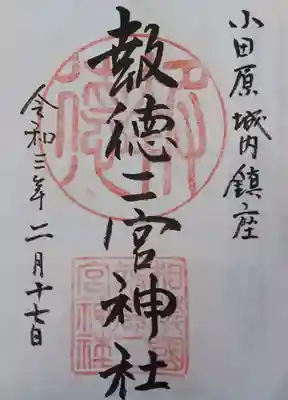 小田原城内鎮座
報徳二宮神社
令和三年二月十七日